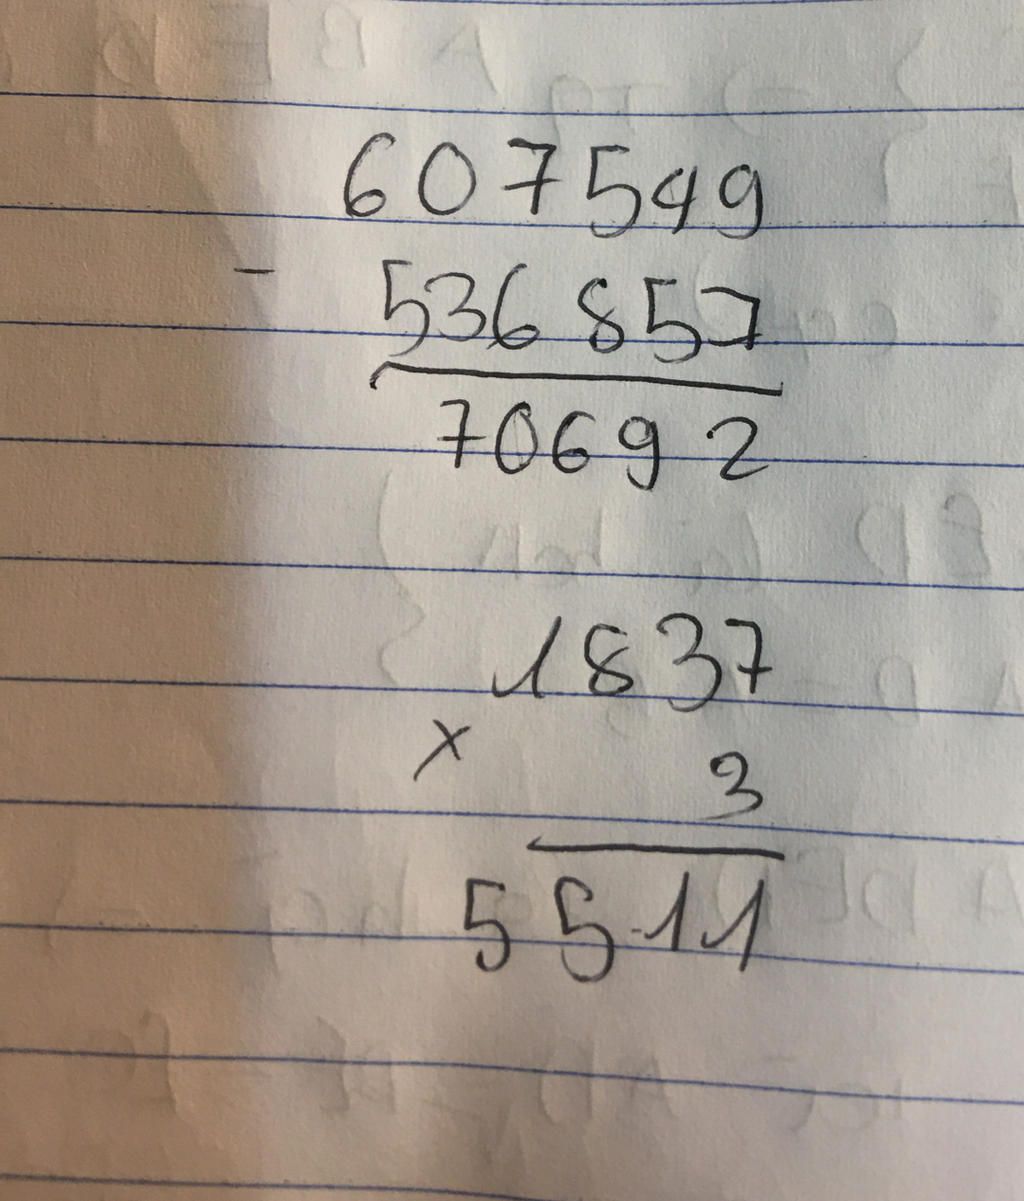 607549
- 536857
70692
1837
x 3
5511